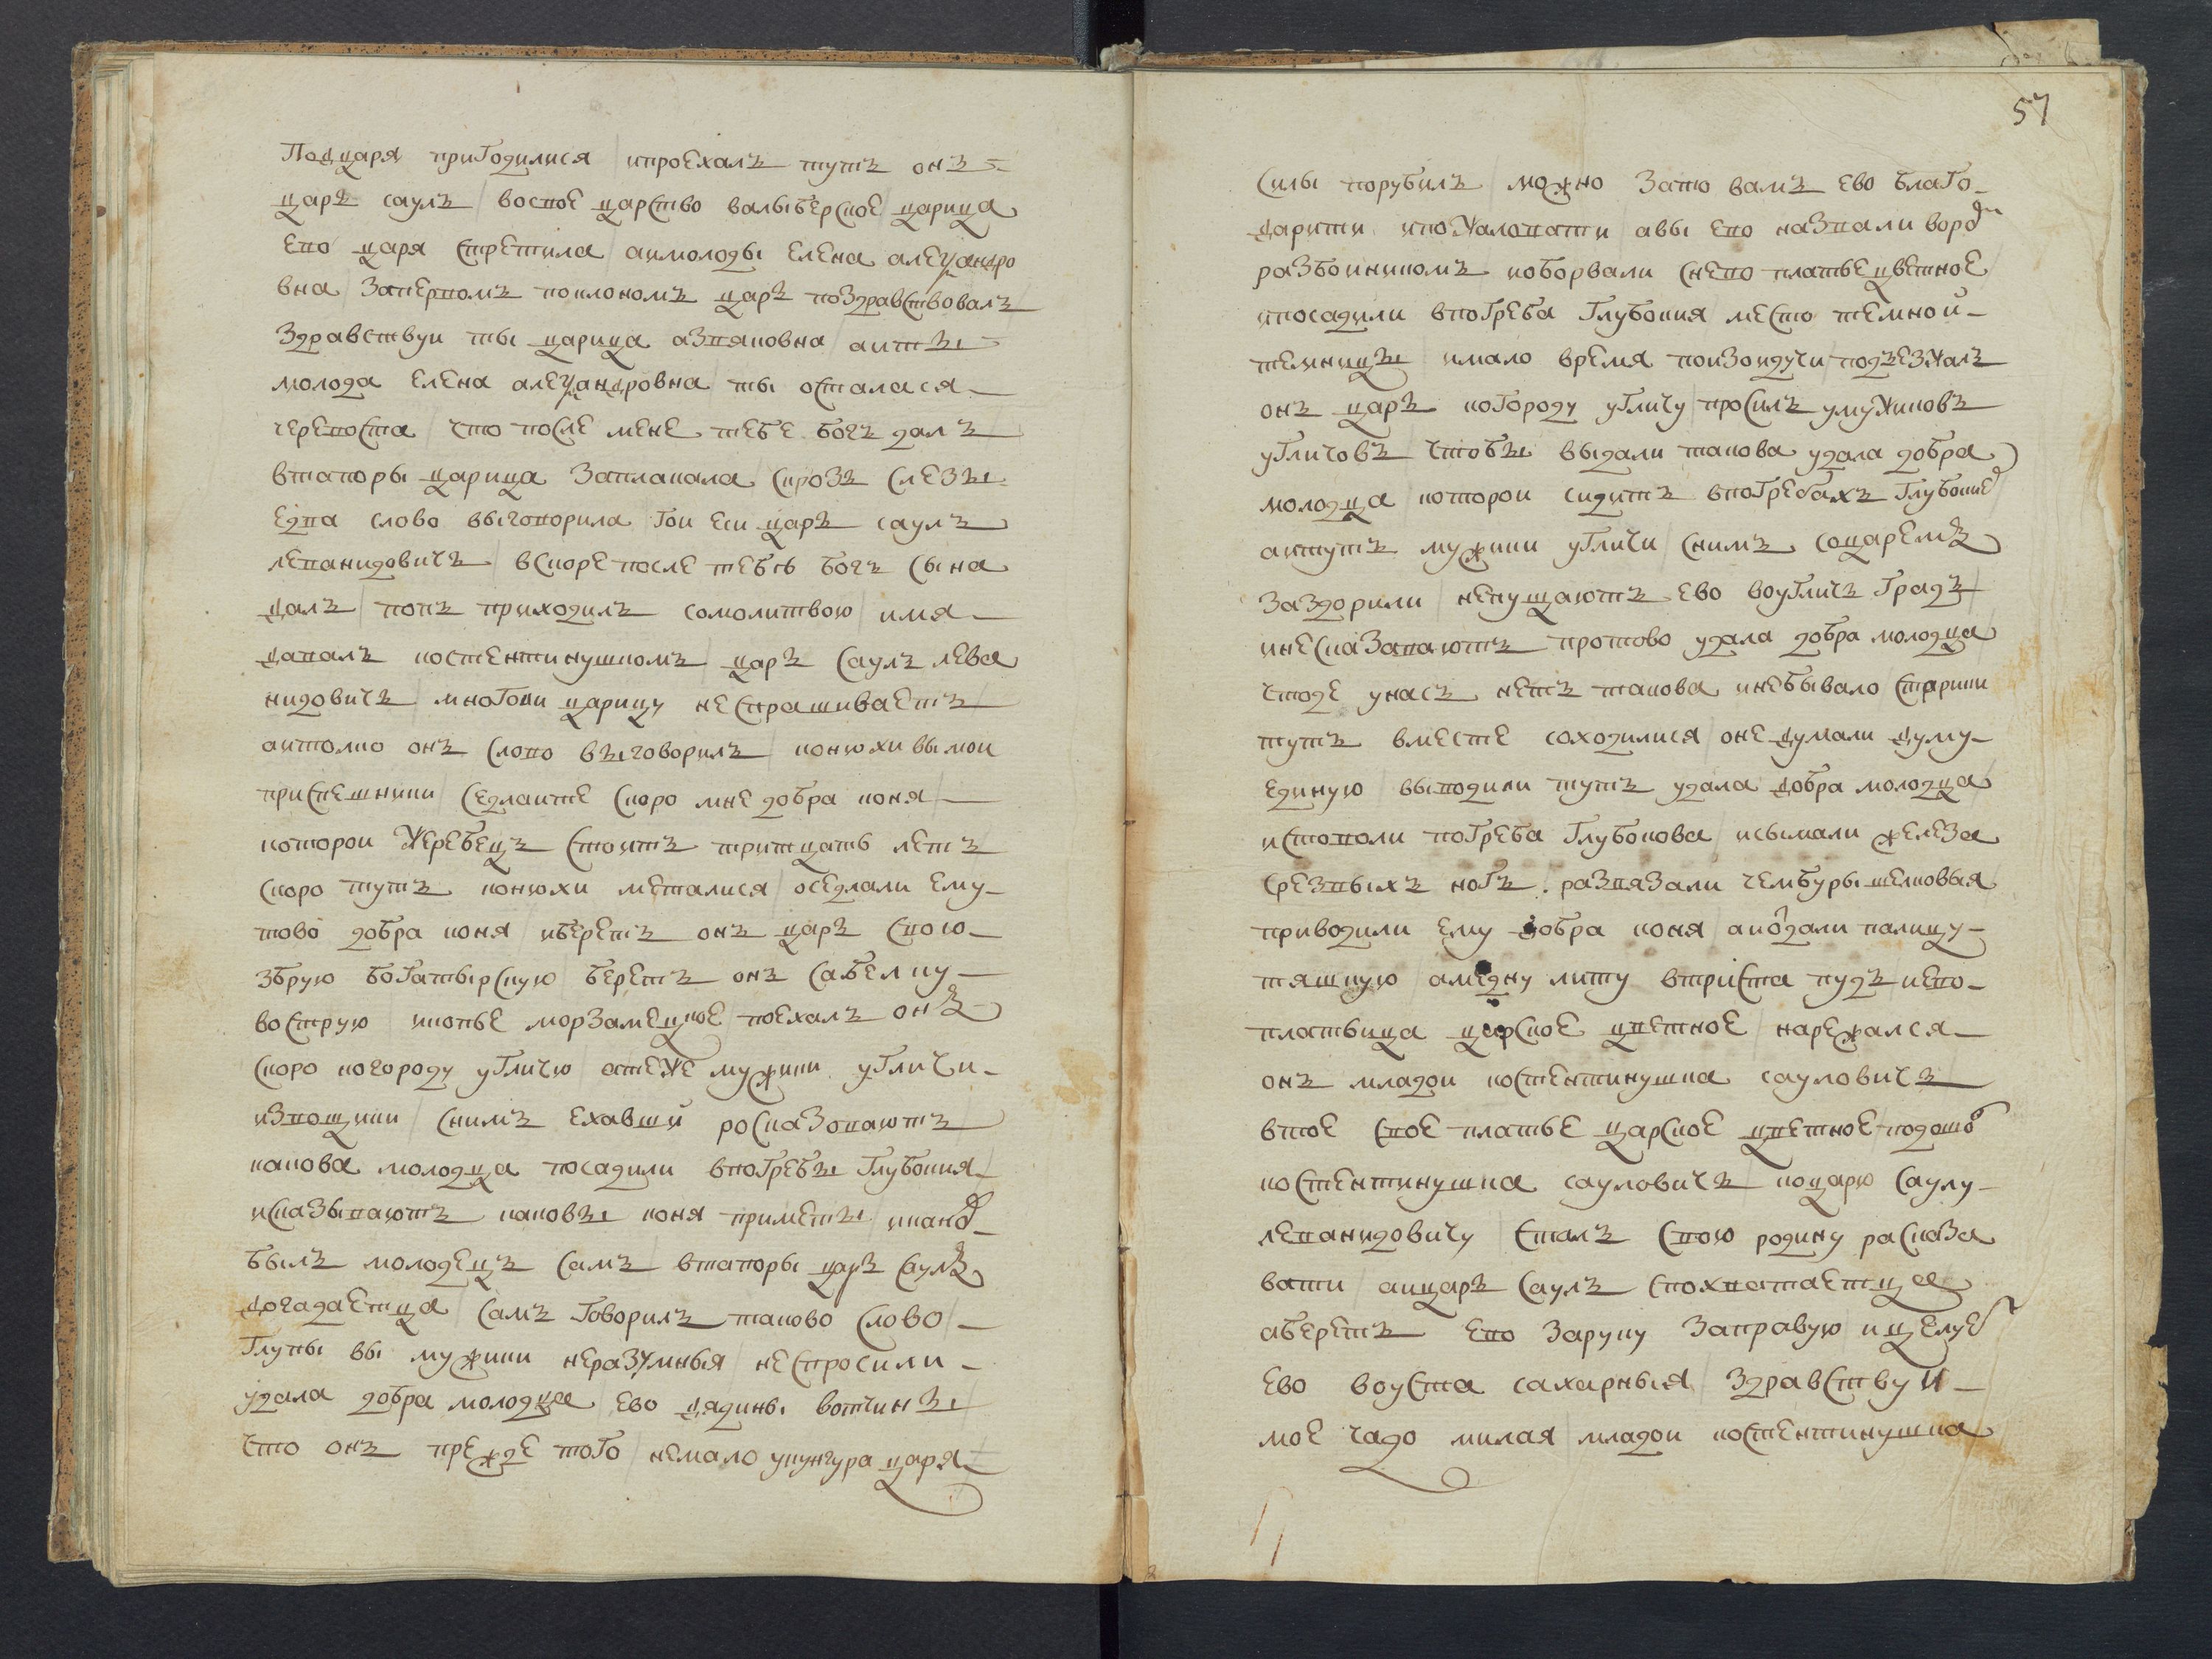 Подцаря пригодилися / ипроехалъ тутъ онъ =
царь саулъ / восвое царство валыберское / царица
ево царя стретила аимолоды елена алеѯандро
вна / заперпомъ поклономъ царь поздравствовалъ /
здравствуи ты царица азвяковна / аиты =
молода елена алеѯандровна / ты осталася —
черевоста / что после мене тебе богъ далъ
втапоры царица заплакала / скрозъ слезы =
едва слово выговорила гои еси царь саулъ
леванидовичъ / вскоре после тебѣ богъ сына
далъ / попъ приходилъ сомолитвою / имя —
давалъ костентинушкомъ / царь саулъ лева
нидовичъ / многоли царицу неспрашиваетъ /
аитолко онъ слово выговорилъ / конюхи вы мои
приспешники / седлаите скоро мне добра коня / —
которои жеребецъ стоитъ тритцать летъ
скоро тутъ конюхи металися / оседлали ему —
тово добра коня / иберетъ онъ царь свою —
збрую богатырскую / беретъ онъ сабелку —
вострую / икопье морзамецкое / поехалъ онъ
скоро когороду угличю / атеже мужики угличи —
извощики / снимъ ехавши росказоваютъ
какова молодца посадили впогребы глубокия /
исказываютъ каковы коня приметы / икаков —
былъ молодецъ самъ / втапоры царь саулъ
догадаетца / самъ говорилъ таково слово / —
глупы вы мужики неразумныя / неспросили —
удала добра молодца / ево дядины вотчины /
что онъ прежде того / немало укунгура царя /

57
силы порубилъ / можно зато вамъ ево благо —
дарити ипожаловати / авы ево назвали вором
разбоиникомъ иоборвали снево платье цветное /
ипосадили впогреба глубокия место темной —
темницы имало время поизоидучи / подъезжалъ
онъ царь когороду угличу / просилъ умужиковъ
угличовъ чтобы выдали такова удала добра
молодца которои сидитъ впогребахъ глубокие
аитутъ мужики угличи / снимъ соцаремъ
заздорили / непущаютъ ево воугличъ градъ /
инесказаваютъ протово удала добра молодца
чтоде унасъ нетъ такова инебывало / старики
тутъ вместе соходилися / оне думали думу —
единую / выводили тутъ удала добра молодца /
истоволи погреба глубокова / исымали железа
срезвыхъ ногъ / развязали чембуры шелковыя
приводили ему добра коня / аиоддали палицу —
тяшкую / амедну литу втриста пудъ / иево —
платьица царское цветное / наряжался —
онъ младои костентинушка сауловичъ
втое свое платье царское цветное / подошо
костентинушка сауловичъ / коцарю саулу —
леванидовичу / сталъ свою родину расказа
вати / аицарь саулъ спохватаетца
аберетъ ево заруку заправую / ицелует
ево воуста сахарныя / здравствуи —
мое чадо милая / младои костентинушка